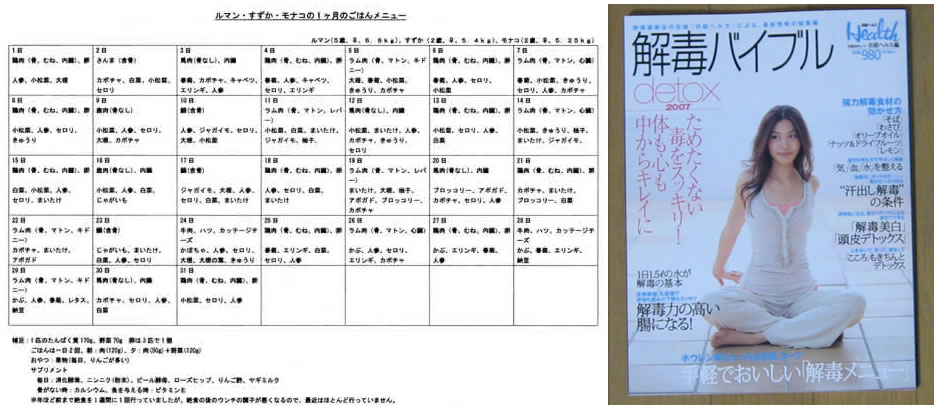 ルマン・すずか・モナコの1ヶ月のごはんメニュー
ルマン(5歳、♀、6.6kg)、すずか(2歳、♀、5.4kg)、モナコ(2歳、♀、5.25kg)
1日
鶏肉(骨、むね、内臓)、卵
人参、小松菜、大根
2日
さんま(含骨)
カボチャ、白菜、小松菜、
セロリ
3日
馬肉(骨なし)、内臓
春菊、カボチャ、キャベツ、
エリンギ、人参
4日
鶏肉(骨、むね、内臓)、卵
春菊、人参、キャベツ、
セロリ、エリンギ
5日
ラム肉(骨、マトン、キドニー)
大根、春菊、小松菜、
きゅうり、カボチャ
6日
鶏肉(骨、むね、内臓)、卵
春菊、人参、セロリ、
小松菜
7日
ラム肉(骨、マトン、心臓)
春菊、小松菜、きゅうり、
セロリ、人参、カボチャ
8日
鶏肉(骨、むね、内臓)、卵
小松菜、人参、セロリ、
きゅうり
9日
鹿肉(骨なし)
小松菜、人参、セロリ、
大根、カボチャ
10日
鯖(含骨)
人参、ジャガイモ、セロリ、
大根、小松菜
11日
ラム肉(骨、マトン、レバー)
小松菜、白菜、まいたけ、
ジャガイモ、柚子
12日
馬肉(骨なし)、内臓
小松菜、まいたけ、人参、
カボチャ、セロリ、
きゅうり
13日
鶏肉(骨、むね、内臓)、卵
小松菜、人参、白菜、
ジャガイモ、セロリ
14日
ラム肉(骨、マトン、心臓)
小松菜、きゅうり、柚子、
まいたけ、ジャガイモ
15日
鶏肉(骨、むね、内臓)、卵
白菜、小松菜、人参、
セロリ、まいたけ
16日
馬肉(骨なし)、内臓
小松菜、人参、白菜、
じゃがいも
17日
鯖(含骨)
ジャガイモ、大根、人参、
セロリ、白菜、まいたけ
18日
鶏肉(骨、むね、内臓)、卵
人参、セロリ、白菜、
まいたけ
19日
ラム肉(骨、マトン、レバー)
まいたけ、大根、柚子、
アボガド、ブロッコリー、
カボチャ
20日
鶏肉(骨、むね、内臓)、卵
ブロッコリー、アボガド、
カボチャ、人参、セロリ
21日
鶏肉(骨、むね、内臓)、卵
カボチャ、人参、大根、
ブロッコリー、白菜
22日
ラム肉(骨、マトン、キドニー)
カボチャ、まいたけ、
アボガド
23日
鯖(含骨)
じゃがいも、まいたけ、
白菜、人参、セロリ
24日
牛肉、ハツ、カッテージチーズ
かぼちゃ、人参、セロリ、
大根、大根の葉、きゅうり
25日
鶏肉(骨、むね、内臓)、卵
春菊、エリンギ、白菜、
セロリ、人参
26日
ラム肉(骨、マトン、心臓)
かぶ、人参、セロリ、
エリンギ、カボチャ
27日
鶏肉(骨、むね、内臓)、卵
かぶ、エリンギ、春菊、
人参
28日
牛肉、ハツ、カッテージチーズ
かぶ、人参、春菊、
納豆
29日
ラム肉(骨、マトン、キドニー)
かぶ、人参、春菊、レタス、
納豆
30日
馬肉(骨なし)、内臓
カボチャ、セロリ、人参、
白菜
31日
鶏肉(骨、むね、内臓)、卵
小松菜、セロリ、人参
補足:1匹のたんぱく質170g、野菜70g 卵は3匹で1個
ごはんは一日2回、朝:肉(120g)、夕:肉(50g)+野菜(120g)
おやつ:果物(毎日、りんごが多い)
サプリメント
毎日:消化酵素、ニンニク(粉末)、ビール酵母、ローズヒップ、りんご酢、ヤギミルク
骨がない時:カルシウム、魚を与える時:ビタミンE
※年ほど前まで絶食を1週間に1回行っていましたが、絶食の後のウンチの調子が悪くなるので、最近はほとんど行っていません。
Health
日経ヘルス編
980
解毒バイブル
detox
2007
ためたくない
毒をスッキリ!
体も心も
中からキレイに
強力解毒食材の
効かせ方
「そば」
「わさび」
「オリーブオイル」
「ナッツ&ドライフルーツ」
「レモン」
「気/血/水」を整える
“汗出し解毒”
の条件
「解毒美白」
「頭皮デトックス」
「こころ」もきちんと
デトックス
1日1.5ℓの水が
解毒の基本
解毒力の高い
腸になる!
手軽でおいしい「解毒メニュー」